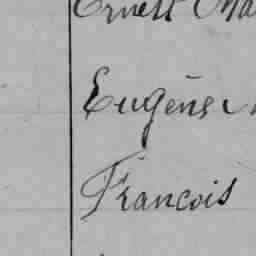 Ernest Ma
Eugène
Francois